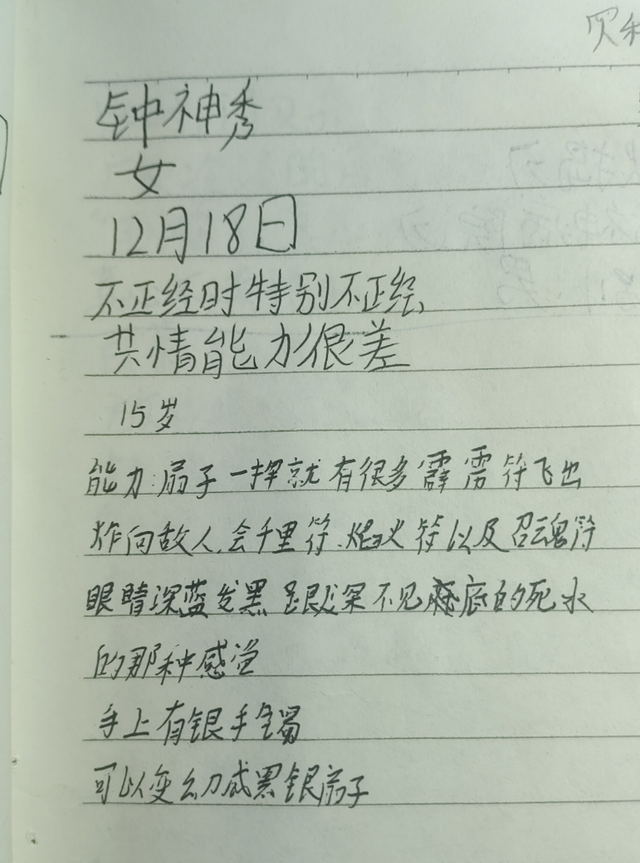 钟神秀
女
12月18日
不正经时特别不正经、
共情能力很差
15岁
能力:扇子一挥就有很多霹雳符飞出
炸向敌人,会千里符、焰火符以及召魂符
眼睛深蓝发黑 是很深不见底的死水
的那种感觉
手上有银手镯
可以变幻成黑银扇子